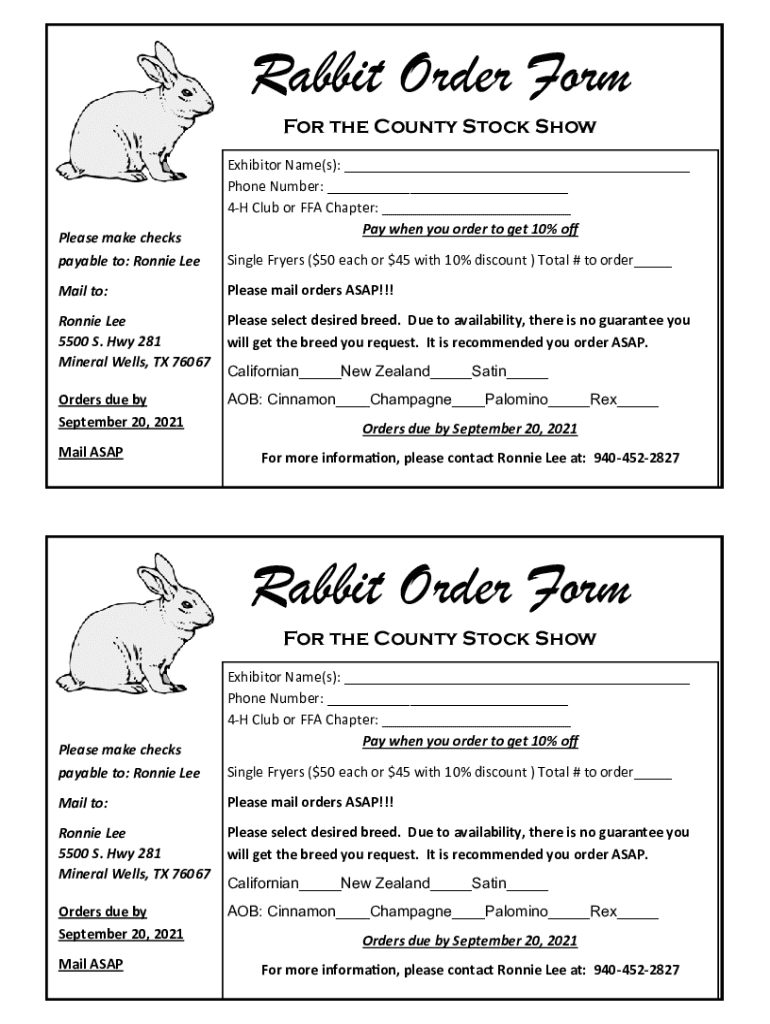 Rabbit Order Form
For the County Stock Show
Please make checks
payable to: Ronnie Lee
Mail to:
Ronnie Lee
5500 S. Hwy 281
Mineral Wells, TX 76067
Orders due by
September 20, 2021
Mail ASAP
Exhibitor Name(s): ______________________________________________
Phone Number: ________________________________
4-H Club or FFA Chapter: _________________________
Pay when you order to get 10% off
Single Fryers ($50 each or $45 with 10% discount ) Total # to order_____
Please mail orders ASAP!!!
Please select desired breed.  Due to availability, there is no guarantee you
will get the breed you request.  It is recommended you order ASAP.
Californian_____New Zealand_____Satin_____
AOB: Cinnamon____Champagne____Palomino_____Rex_____
Orders due by September 20, 2021
For more information, please contact Ronnie Lee at:  940-452-2827
Rabbit Order Form
For the County Stock Show
Please make checks
payable to: Ronnie Lee
Mail to:
Ronnie Lee
5500 S. Hwy 281
Mineral Wells, TX 76067
Orders due by
September 20, 2021
Mail ASAP
Exhibitor Name(s): ______________________________________________
Phone Number: ________________________________
4-H Club or FFA Chapter: _________________________
Pay when you order to get 10% off
Single Fryers ($50 each or $45 with 10% discount ) Total # to order_____
Please mail orders ASAP!!!
Please select desired breed.  Due to availability, there is no guarantee you
will get the breed you request.  It is recommended you order ASAP.
Californian_____New Zealand_____Satin_____
AOB: Cinnamon____Champagne____Palomino_____Rex_____
Orders due by September 20, 2021
For more information, please contact Ronnie Lee at:  940-452-2827